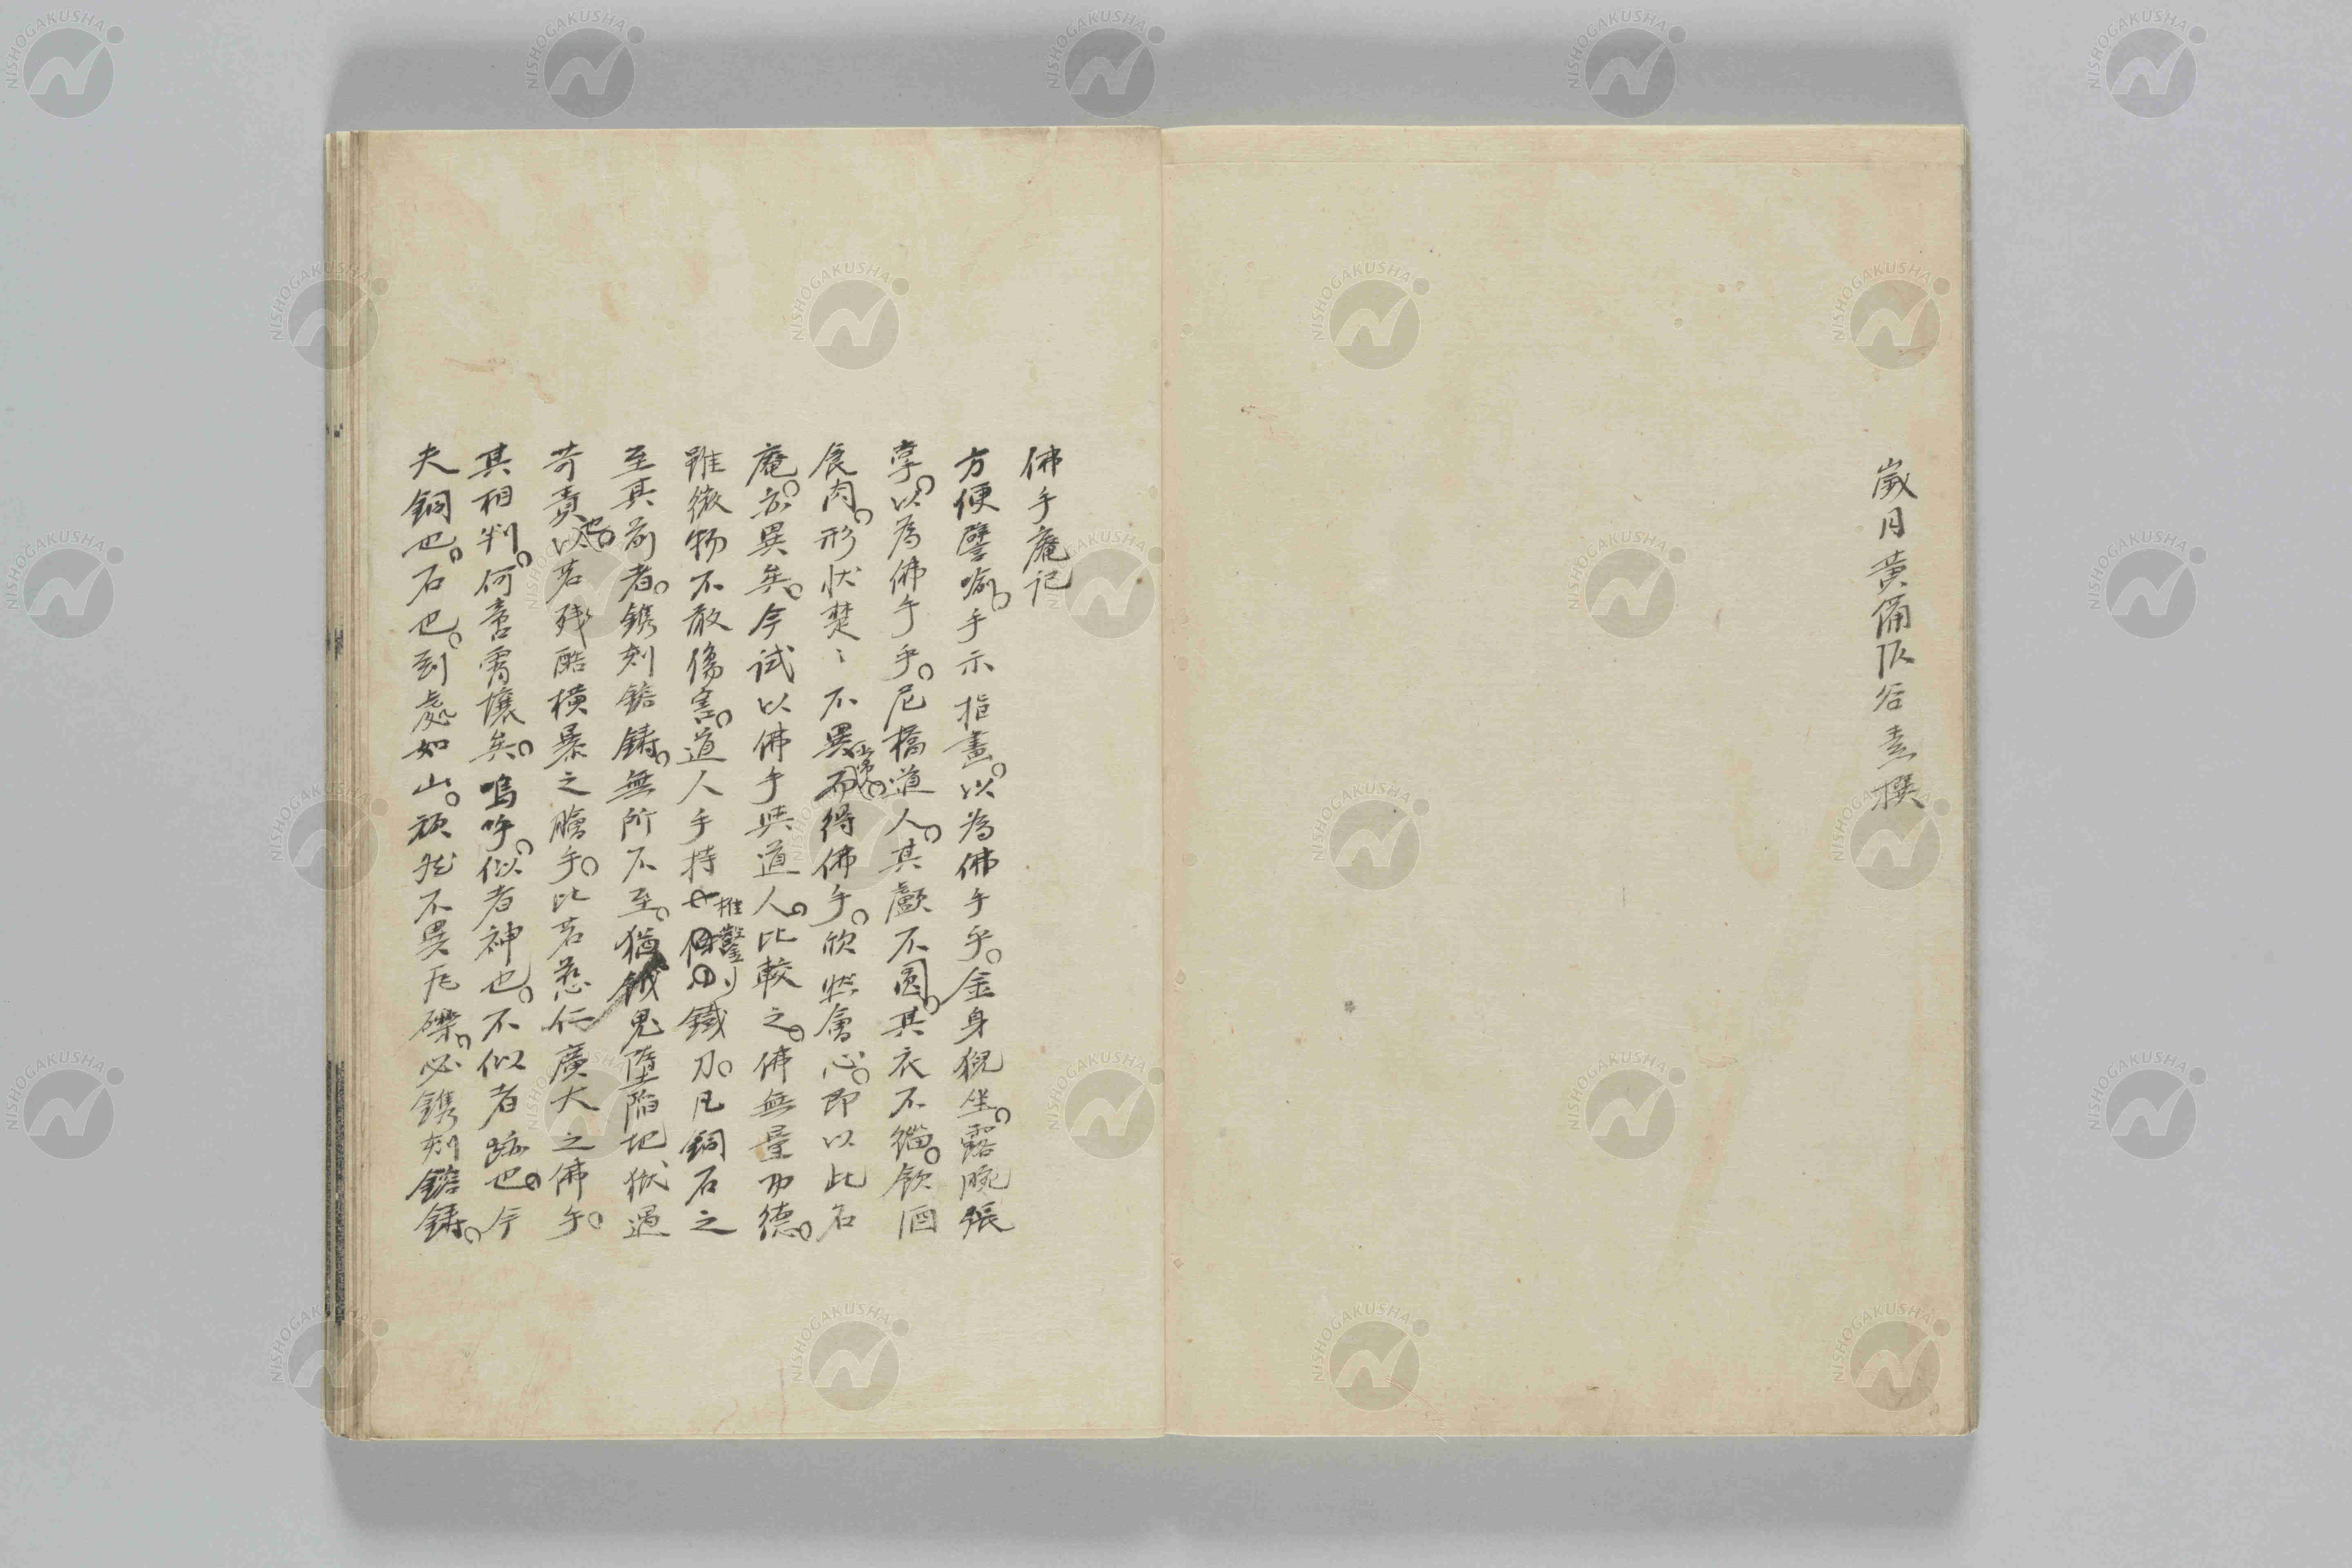 歲月黃備阪谷素撰
佛手庵记
方便譬喻。手示指畫。以為佛手乎。金身猊坐。露腕張
掌。以為佛手乎。尼橋道人。其顱不圓。其衣不緇。飲酒
食肉。形状楚〻不異
而得佛手。欣然會心。即以此名
庵。亦異矣。今试以佛手與道人。比較之。佛無量功德。
雖微物不敢傷害。道人手持
推鑿
鐵刀。凡銅石之
至其前者。鐫刻鎔鑄。無所不至。猶餓鬼墮陥地獄遇
苛責
以若残酷横暴之膽手。比若慈仁廣大之佛手。
其相判。何啻霄壤矣。嗚呼。似者神也。不似者跡也。今
夫銅也。石也。到處如山。頑然不異瓦礫。必鐫刻鎔鑄。
NISHOGAKUSHA